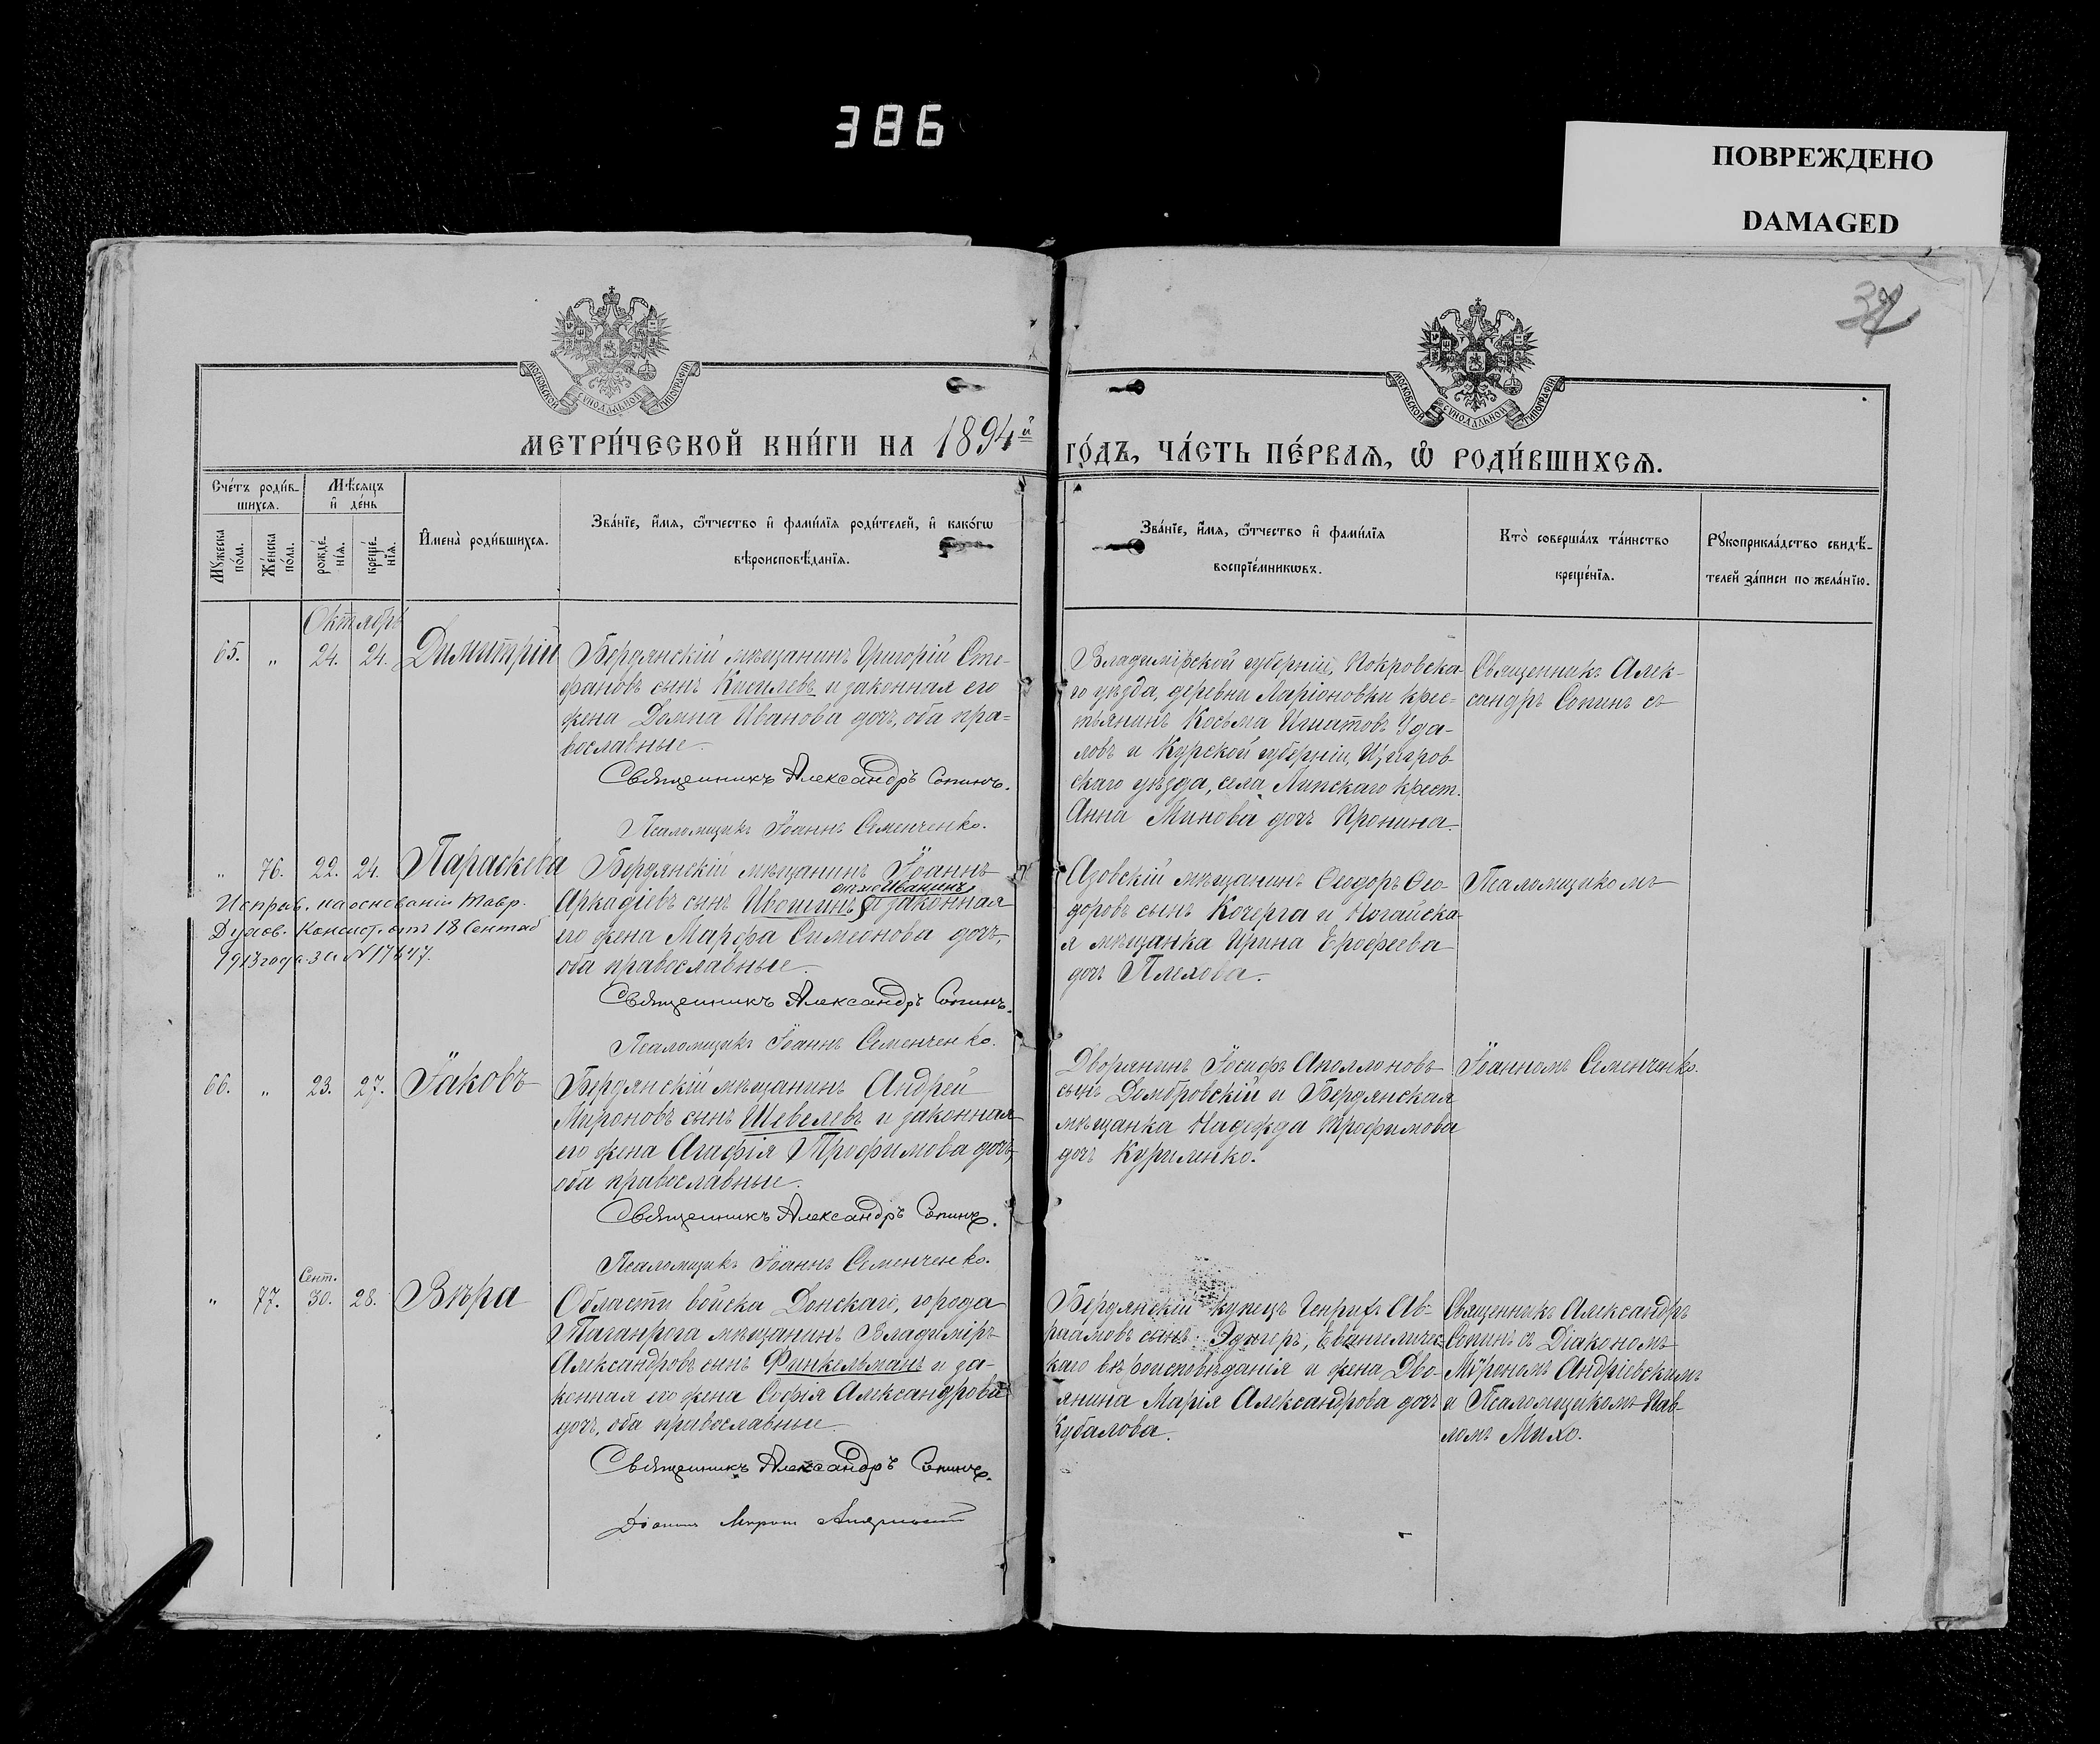 386
ПОВРЕЖДЕНО
DAMAGED
37
МОСКОВСКОЙ СѴНОДАЛЬНОЙ ТИПОГРАФІИ
МОСКОВСКОЙ СѴНОДАЛЬНОЙ ТИПОГРАФІИ
МЕТРИ́ЧЕСКОЙ КНИ́ГИ НА 1894й
ГО́ДЪ, ЧА́СТЬ ПЕ́РВАѦ, Ѡ҆ РОДИ́ВШИХСѦ.
Сче́тъ роди́в-
шихсѧ.
Мѣ́сѧцъ
и҆ де́нь
Мꙋ́жеска по́ла.
Же́нска по́ла.
рожде́нїѧ.
креще́нїѧ.
И҆мена̀ роди́вшихсѧ.
Зва́нїе, и҆́мѧ, ѻ҆́тчество и҆ фами́лїѧ роди́телей, и҆ како́гѡ
вѣроисповѣ́данїѧ.
Зва́нїе, и҆́мѧ, ѻ҆́тчество и҆ фами́лїѧ
воспрїе́мникѡвъ.
Кто̀ соверша́лъ та́инство
креще́нїѧ.
Рꙋкоприкла́дство свидѣ́-
телей за́писи по жела́нїю.
Октябрь
65. „ 24. 24. Димитрій
Бердянскій мѣщанинъ Григорій Сте-
фановъ сынъ Киселевъ и законная его
жена Домна Иванова дочь, оба пра-
вославные.
Священникъ Александръ Сопинъ.
Псаломщикъ Іоаннъ Семенченко.
Владимірской губерніи, Покровска-
го уѣзда, деревни Ларіоновки крес-
тьянинъ Косьма Игнатовъ Уда-
ловъ и Курской губерніи, Щигров-
скаго уѣзда, села Липскаго крест.
Анна Минова дочь Пронина.
Священникъ Алек-
сандръ Сопинъ съ
„ 76. 22. 24. Параскева
Исправ. на основаніи Тавр.
Духов. Консист. отъ 18 Сентяб
1913 года за № 17647.
Бердянскій мѣщанинъ Іоаннъ
онъ же Иванинъ
Аркадіевъ сынъ Ивошинъ и законная
его жена Марѳа Симеонова дочь,
оба православные.
Священникъ Александръ Сопинъ.
Псаломщикъ Іоаннъ Семенченко.
Азовскій мѣщанинъ Ѳеодоръ Ѳео-
доровъ сынъ Кочерга и Ногайска-
я мѣщанка Ирина Ерофеева
дочь Плехова.
Псаломщикомъ
66. „ 23. 27. Іаковъ
Бердянскій мѣщанинъ Андрей
Мироновъ сынъ Шевелевъ и законная
его жена Агафія Трофимова дочь,
оба православные.
Священникъ Александръ Сопинъ.
Псаломщикъ Іоаннъ Семенченко.
Дворянинъ Іосифъ Аполлоновъ
сынъ Домбровскій и Бердянская
мѣщанка Надежда Трофимова
дочь Куриленко.
Іоанномъ Семенченко.
Сент.
„ 77. 30. 28. Вѣра
Области войска Донскаго, города
Таганрога мѣщанинъ Владиміръ
Александровъ сынъ Финкельманъ и за-
конная его жена Софія Александрова
дочь, оба православные.
Священникъ Александръ Сопинъ.
Діаконъ Миронъ Андріевскій
Бердянскій купецъ Генрихъ Ав-
раамовъ сынъ Эдигеръ, Евангеличес-
каго вѣроисповѣданія и жена Дво-
рянина Марія Александрова дочь
Кубалова.
Священникъ Александръ
Сопинъ съ Діакономъ
Мѵрономъ Андріевскимъ
и Псаломщикомъ Пав-
ломъ Михо.